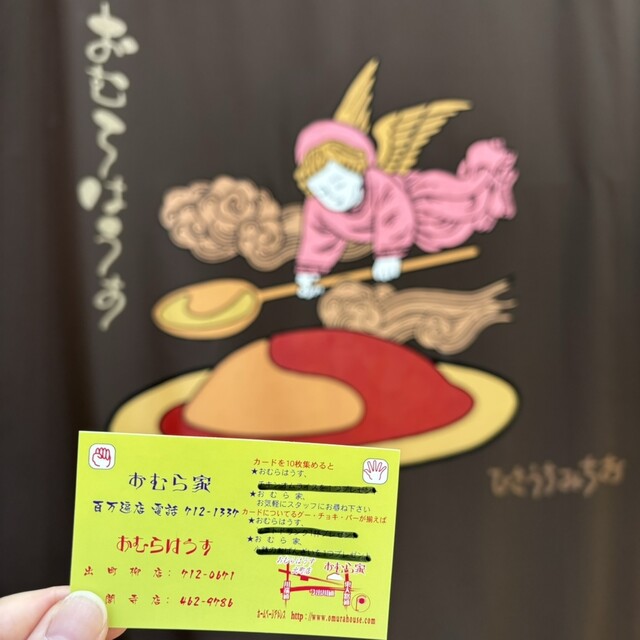 おむらはうす
ひさうちみち夫
おむら家
百万遍店 電話 712-1337
おむらはうす
出町柳店: 712-0671
462-9786
カードを10枚集めると
★おむらはうす、
★おむら家、
お気軽にスタッフにお尋ね下さい
カードについてるグー・チョキ・パーが揃えば
★おむらはうす、
★おむら家、
おむら家
ホームページアドレス http://www.omurahouse.com